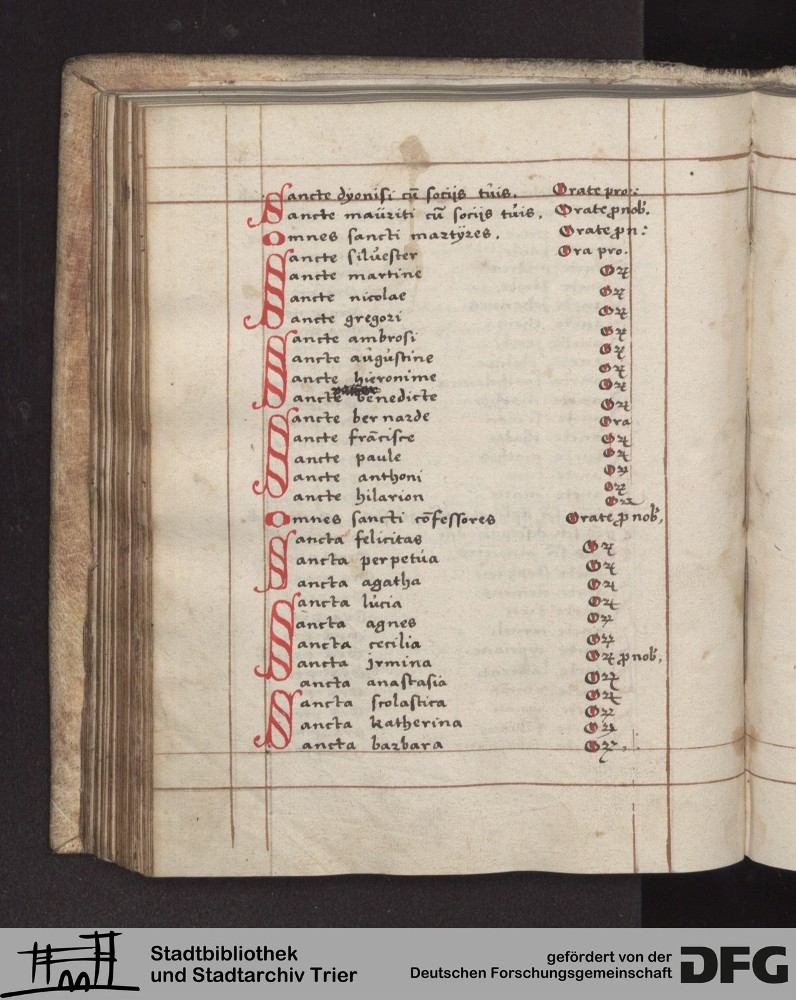 Sancte dyonisi cū socijs tuis. Orate pro:
Sancte mauriti cū socijs tuis. Orate pnob.
Omnes sancti martyres. Orate pn:
Sancte siluester Ora pro.
Sancte martine Oꝝ
Sancte nicolae Oꝝ
Sancte gregori Oꝝ
Sancte ambrosi Oꝝ
Sancte augustine Oꝝ
Sancte hieronime Oꝝ
Sancte benedicte Oꝝ
Sancte bernarde Oꝝ
Sancte frācisce Ora
Sancte paule Oꝝ
Sancte anthoni Oꝝ
Sancte hilarion Oꝝ
Omnes sancti cōfessores Orate p nob,
Sancta felicitas Oꝝ
Sancta perpetua Oꝝ
Sancta agatha Oꝝ
Sancta lucia Oꝝ
Sancta agnes Oꝝ
Sancta cecilia Oꝝ
Sancta jrmina Oꝝ p nob,
Sancta anastasia Oꝝ
Sancta scolastica Oꝝ
Sancta katherina Oꝝ
Sancta barbara Oꝝ
Stadtbibliothek
und Stadtarchiv Trier
gefördert von der
Deutschen Forschungsgemeinschaft
DFG